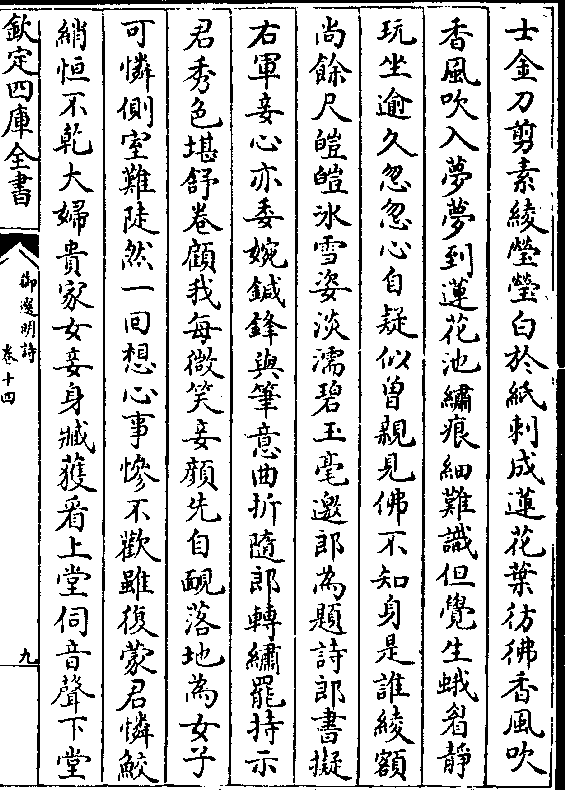 士金刀剪素綾瑩瑩白於紙刺成蓮花葉彷彿香風吹
香風吹入夢夢到蓮花池繡痕細難識但覺生蛾眉靜
玩坐逾久忽忽心自疑似曾親見佛不知身是誰綾額
尚餘尺皚皚冰雪姿淡濡碧玉毫邀郎為題詩郎書擬
右軍妾心亦委婉鍼鋒與筆意曲折隨郎轉繡罷持示
君秀色堪舒卷顧我每微笑妾顏先自靦落地為女子
可憐側室難陡然一回想心事慘不歡雖復蒙君憐鮫
綃恒不乾大婦貴家女妾身臧獲看上堂伺音聲下堂
欽定四庫全書
御選明詩
卷十四
九